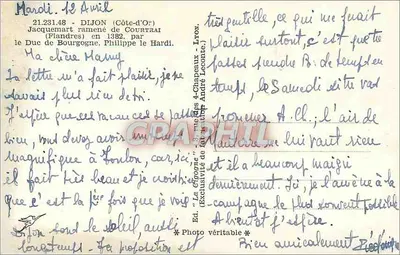 Mardi. 12 Avril
21.231.48 - DIJON (Côte-d'Or)
Jacquemart ramené de COURTRAI
(Flandres) en 1382, par
le Duc de Bourgogne, Philippe le Hardi.
Ma chère Mamy
Ta lettre m'a fait plaisir, je ne
savais plus rien de toi.
J'espère que ces vacances se passent
bien, vous devez avoir un temps
magnifique à Toulon, car, ici,
il fait très beau et je crois
que c'est la 1ère fois que je vois
Dijon sous le soleil, aussi
longtemps. Ta proposition est
très gentille, ce qui me ferait
plaisir surtout, c'est que tu
passes prendre B. de temps en
temps, le Samedi si tu vas
promener A. Cl.; l'air de
lui vaut rien
et il a beaucoup maigri
dernièrement. Ici, je l'amène à la
campagne le plus souvent possible
A bientôt j'espère.
Bien amicalement
Ed. "La Cigogne" - des 4-Chapeaux - Lyon
(Exclusivité de André Leconte)
* Photo véritable *
CPAPHIL